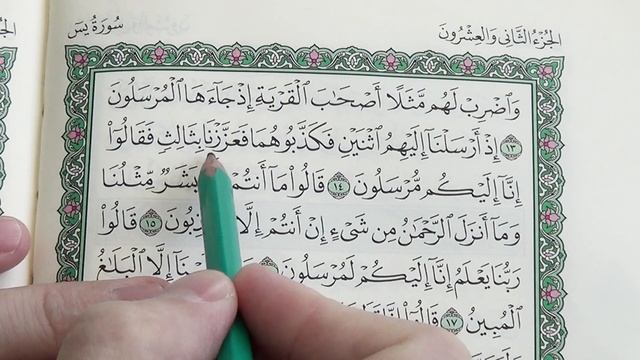 الجُزْءُ الثَّانِي وَالعِشْرُونَ سُورَةُ يسٓ
وَٱضْرِبْ لَهُم مَّثَلًا أَصْحَٰبَ ٱلْقَرْيَةِ إِذْ جَآءَهَا ٱلْمُرْسَلُونَ
١٣ إِذْ أَرْسَلْنَآ إِلَيْهِمُ ٱثْنَيْنِ فَكَذَّبُوهُمَا فَعَزَّزْنَا بِثَالِثٍ فَقَالُوٓا۟
إِنَّآ إِلَيْكُم مُّرْسَلُونَ ١٤ قَالُوا۟ مَآ أَنتُمْ بَشَرٌ مِّثْلُنَا
وَمَآ أَنزَلَ ٱلرَّحْمَٰنُ مِن شَىْءٍ إِنْ أَنتُمْ إِلَّا ١٥ قَالُوا۟
رَبُّنَا يَعْلَمُ إِنَّآ إِلَيْكُمْ لَمُرْسَلُونَ إِلَّا ٱلْبَلَٰغُ
ٱلْمُبِينُ ١٧ قَالُوٓا۟